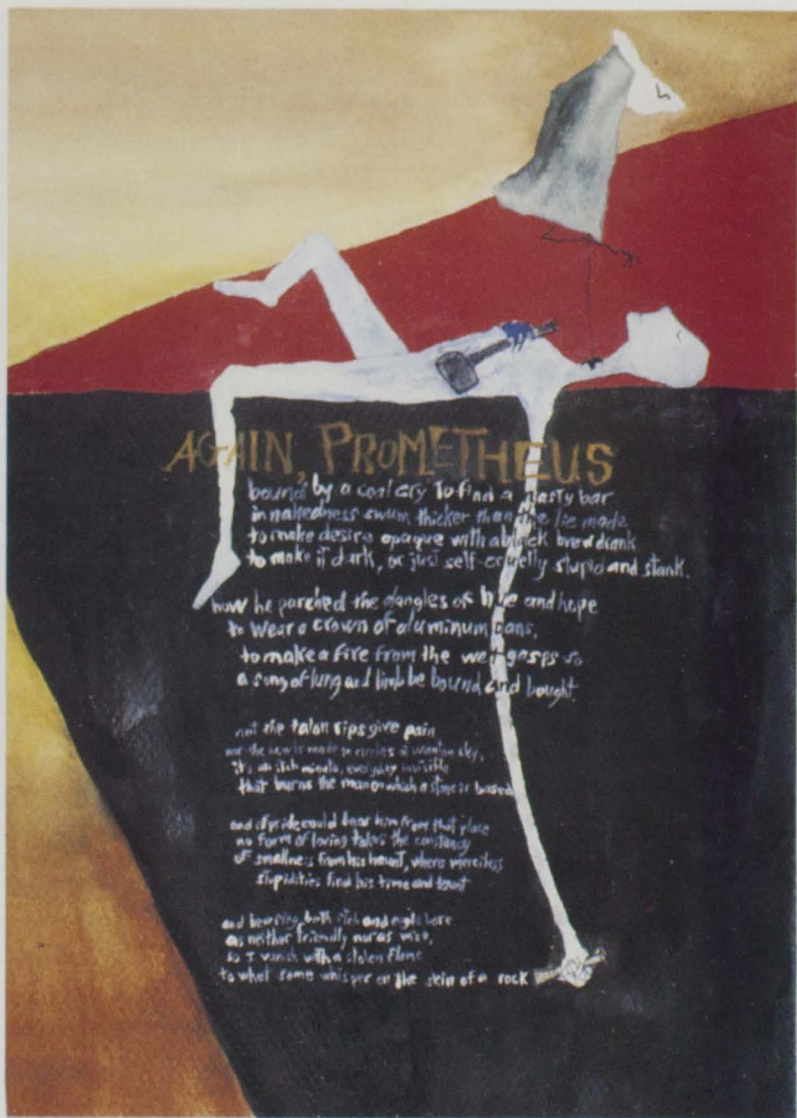 AGAIN, PROMETHEUS
bound by a coal cry to find a nasty bar
in nakedness swum thicker than the lie made
to make desire opaque with a black brew drank
to make it dark, or just self-cruelly stupid and stank.
how he parched the dangles of and hope
to wear a crown of aluminum cans,
to make a fire from the wet gasps so
a song of lung and limb be bound and bought.
not the talon rips give pain
nor the made in circles a wanton sky,
it's an itch minute, everyday invisible
that burns the man on which a stone is based
and if pride could bear him from that place
no form of loving takes the constancy
of smallness from his haunt, where merciless
stupidities find his time and taunt
and bearing both itch and eagle here
as neither friendly nor as wise,
so I vanish with a stolen flame
to what some whisper on the skin of a rock